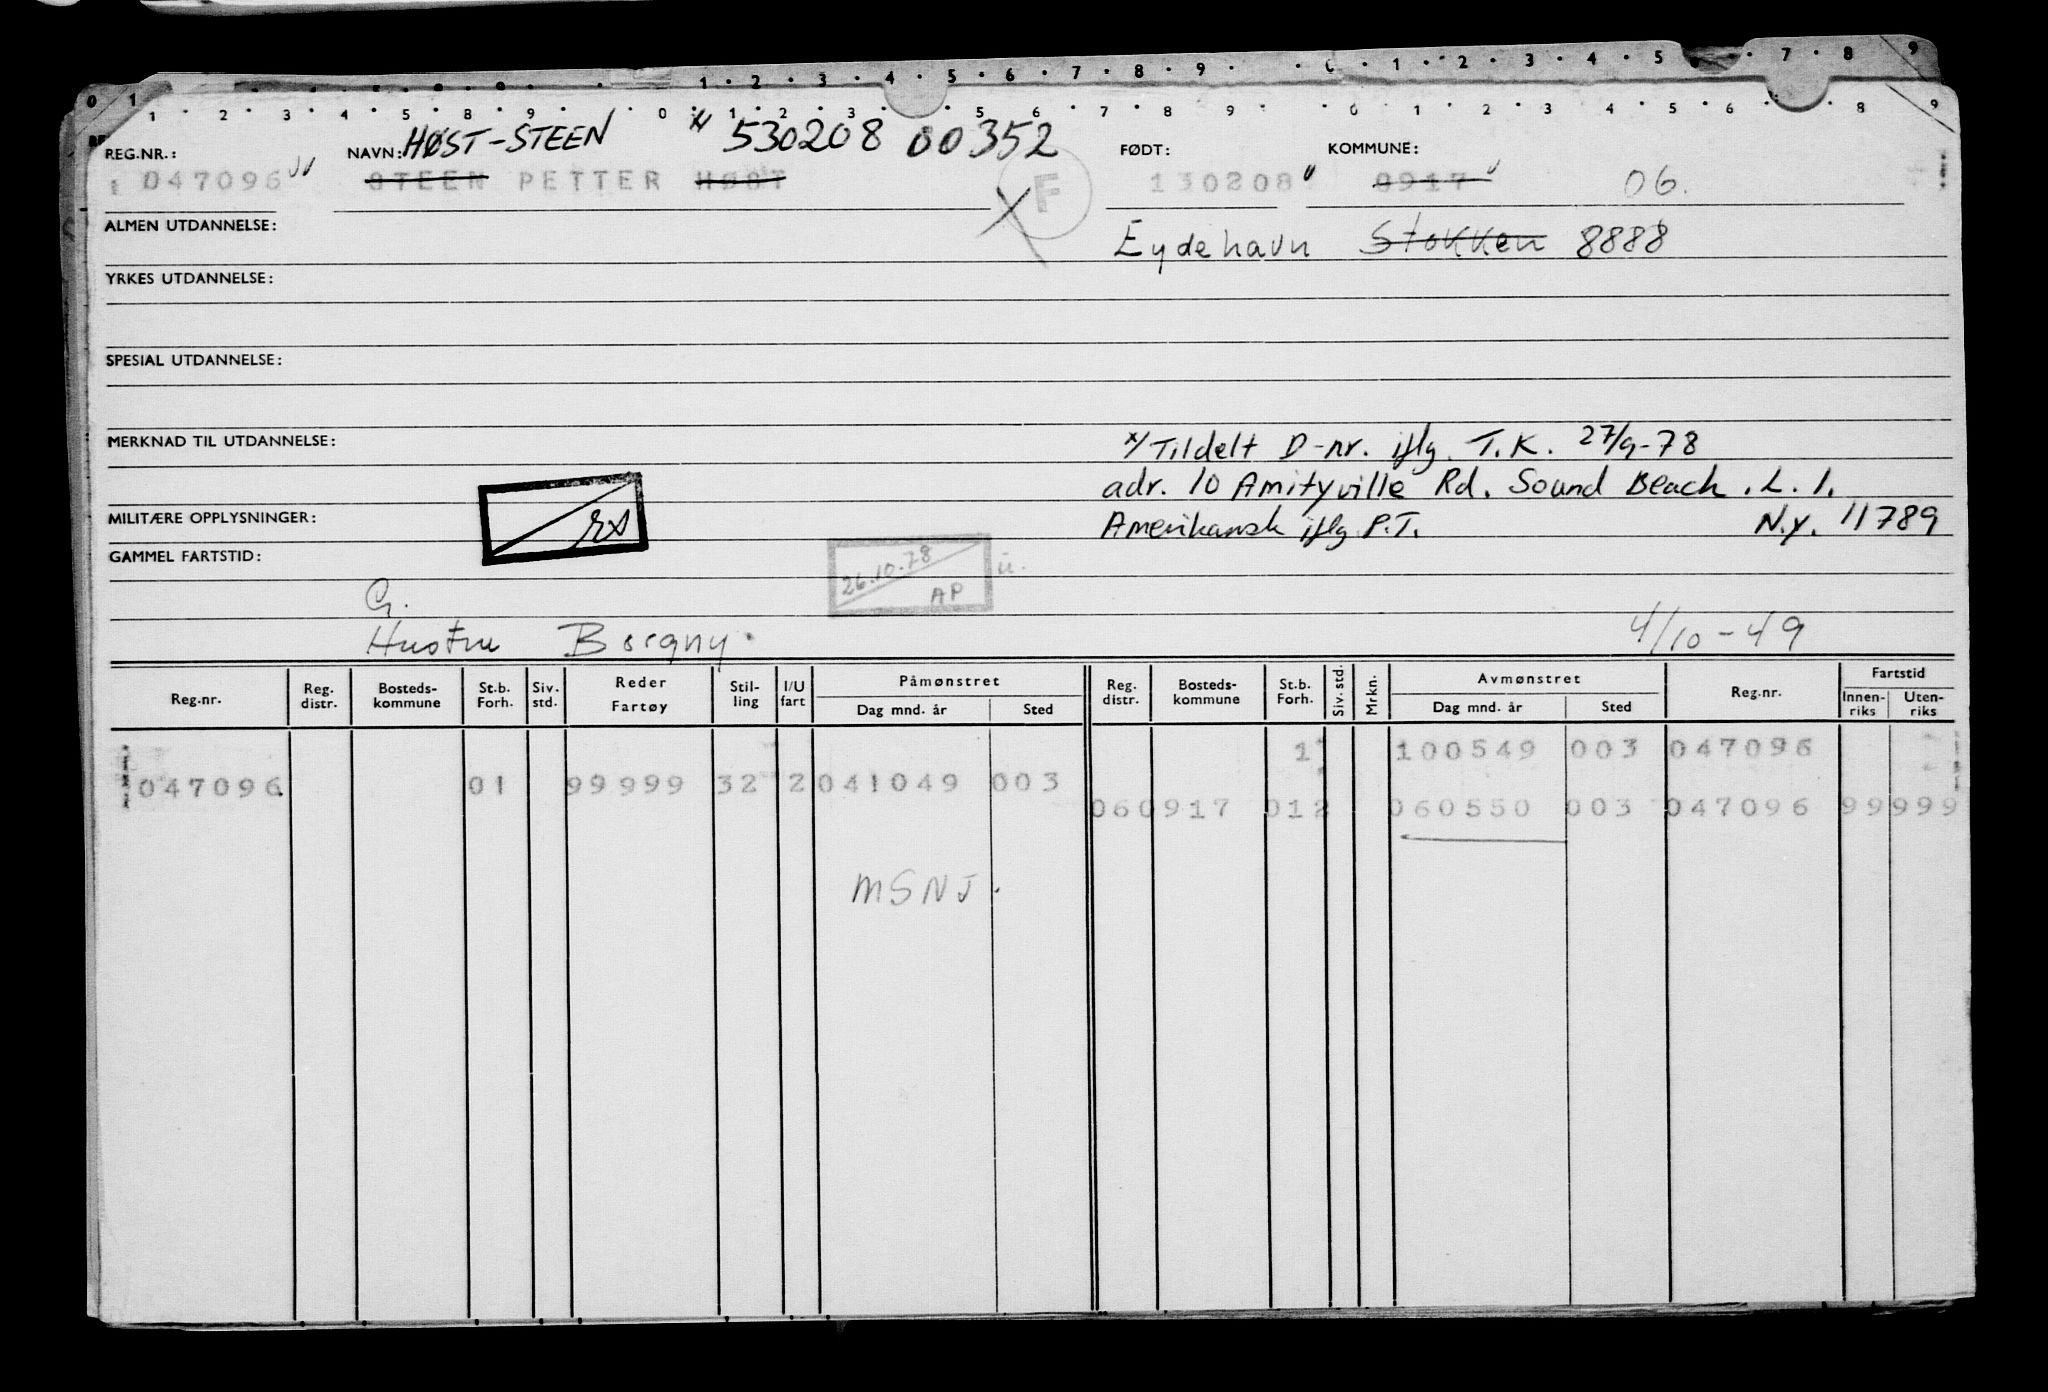 1 · 2 · 3 · 4 · 5 · 6 · 7 · 8 · 9 · · 0 · 1 · 2 · 3 · 4 · 5 7 · 8 9
0 1 · 2 · 3 · 4 · 5 · 8 · 9 · 0 · 1 · 2 · 3 · 5 · 6 · 7 · 8 · 9 · 0 · 1 · 2 · 3 · 4 · 5 · 6 · 8 · 9
REG.NR.: NAVN: HØST-STEEN x/ 530208 00352 FØDT: KOMMUNE:
047096 STEEN PETTER HØST F 130208 0917 06.
ALMEN UTDANNELSE: Eydehavn Stokken 8888
YRKES UTDANNELSE:
SPESIAL UTDANNELSE:
MERKNAD TIL UTDANNELSE: x/ Tildelt D-nr. iflg. T.K. 27/9-78
adr. 10 Amityville Rd. Sound Beach. L. I.
MILITÆRE OPPLYSNINGER: Amerikansk iflg P.T. N.y. 11789
GAMMEL FARTSTID: 26.10.78 AP u.
G.
Hustru Borgny. 4/10-49
Reg.nr. Reg. distr. Bosteds-kommune St.b. Forh. Siv. std. Reder Fartøy Stil-ling I/U fart Påmønstret Dag mnd. år Sted Reg. distr. Bosteds-kommune St.b. Forh. Siv. std. Mrkn. Avmønstret Dag mnd. år Sted Reg.nr. Fartstid Innen-riks Uten-riks
1 100549 003 047096
047096 01 99999 32 2 041049 003
060917 012 060550 003 047096 99999
MSNJ.